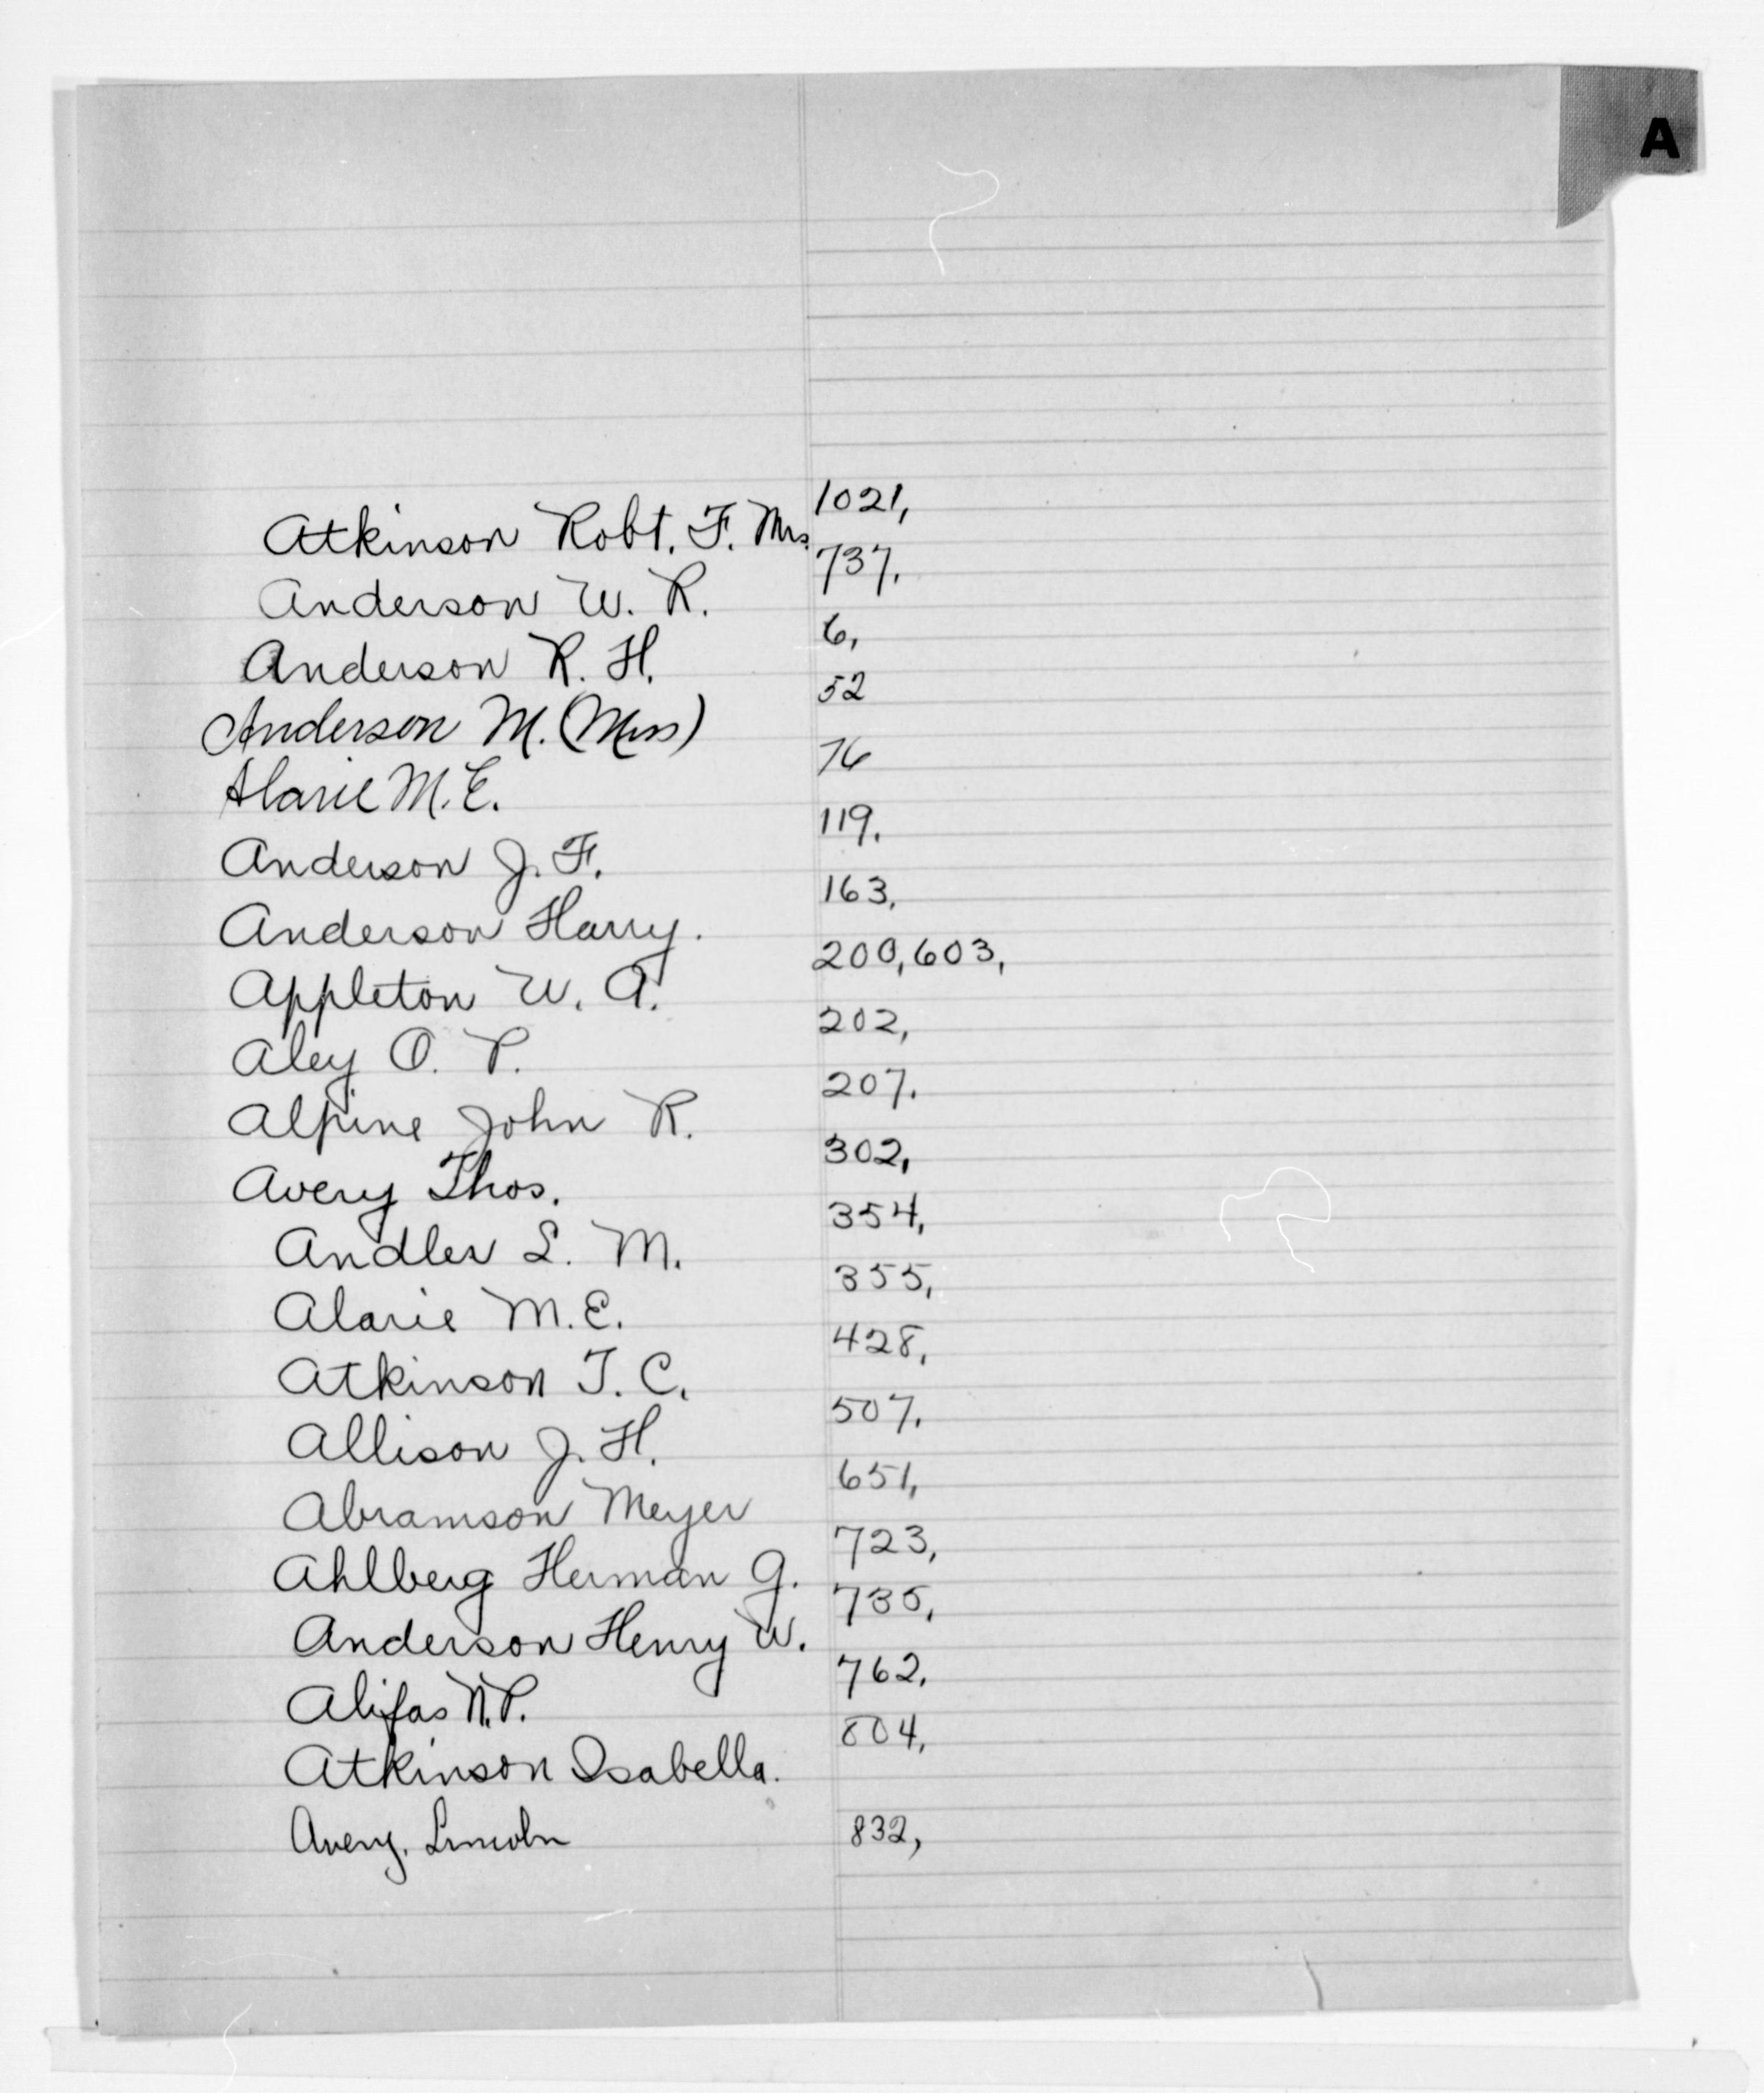 A
Atkinson Robt. F. Mrs. 1021,
Anderson W. R. 737,
Anderson R. H. 6,
Anderson M. (Miss) 52
Alarie M. E. 76
Anderson J. F. 119,
Anderson Harry. 163,
Appleton W. A. 200, 603,
Aley O. P. 202,
Alpine John R. 207,
Avery Thos. 302,
Andler L. M. 354,
Alarie M. E. 355,
Atkinson T. C. 428,
Allison J. H. 507,
Abramson Meyer 651,
Ahlberg Herman G. 723,
Anderson Henry W. 735,
Alifas N. P. 762,
Atkinson Isabella. 804,
Avery, Lincoln 832,